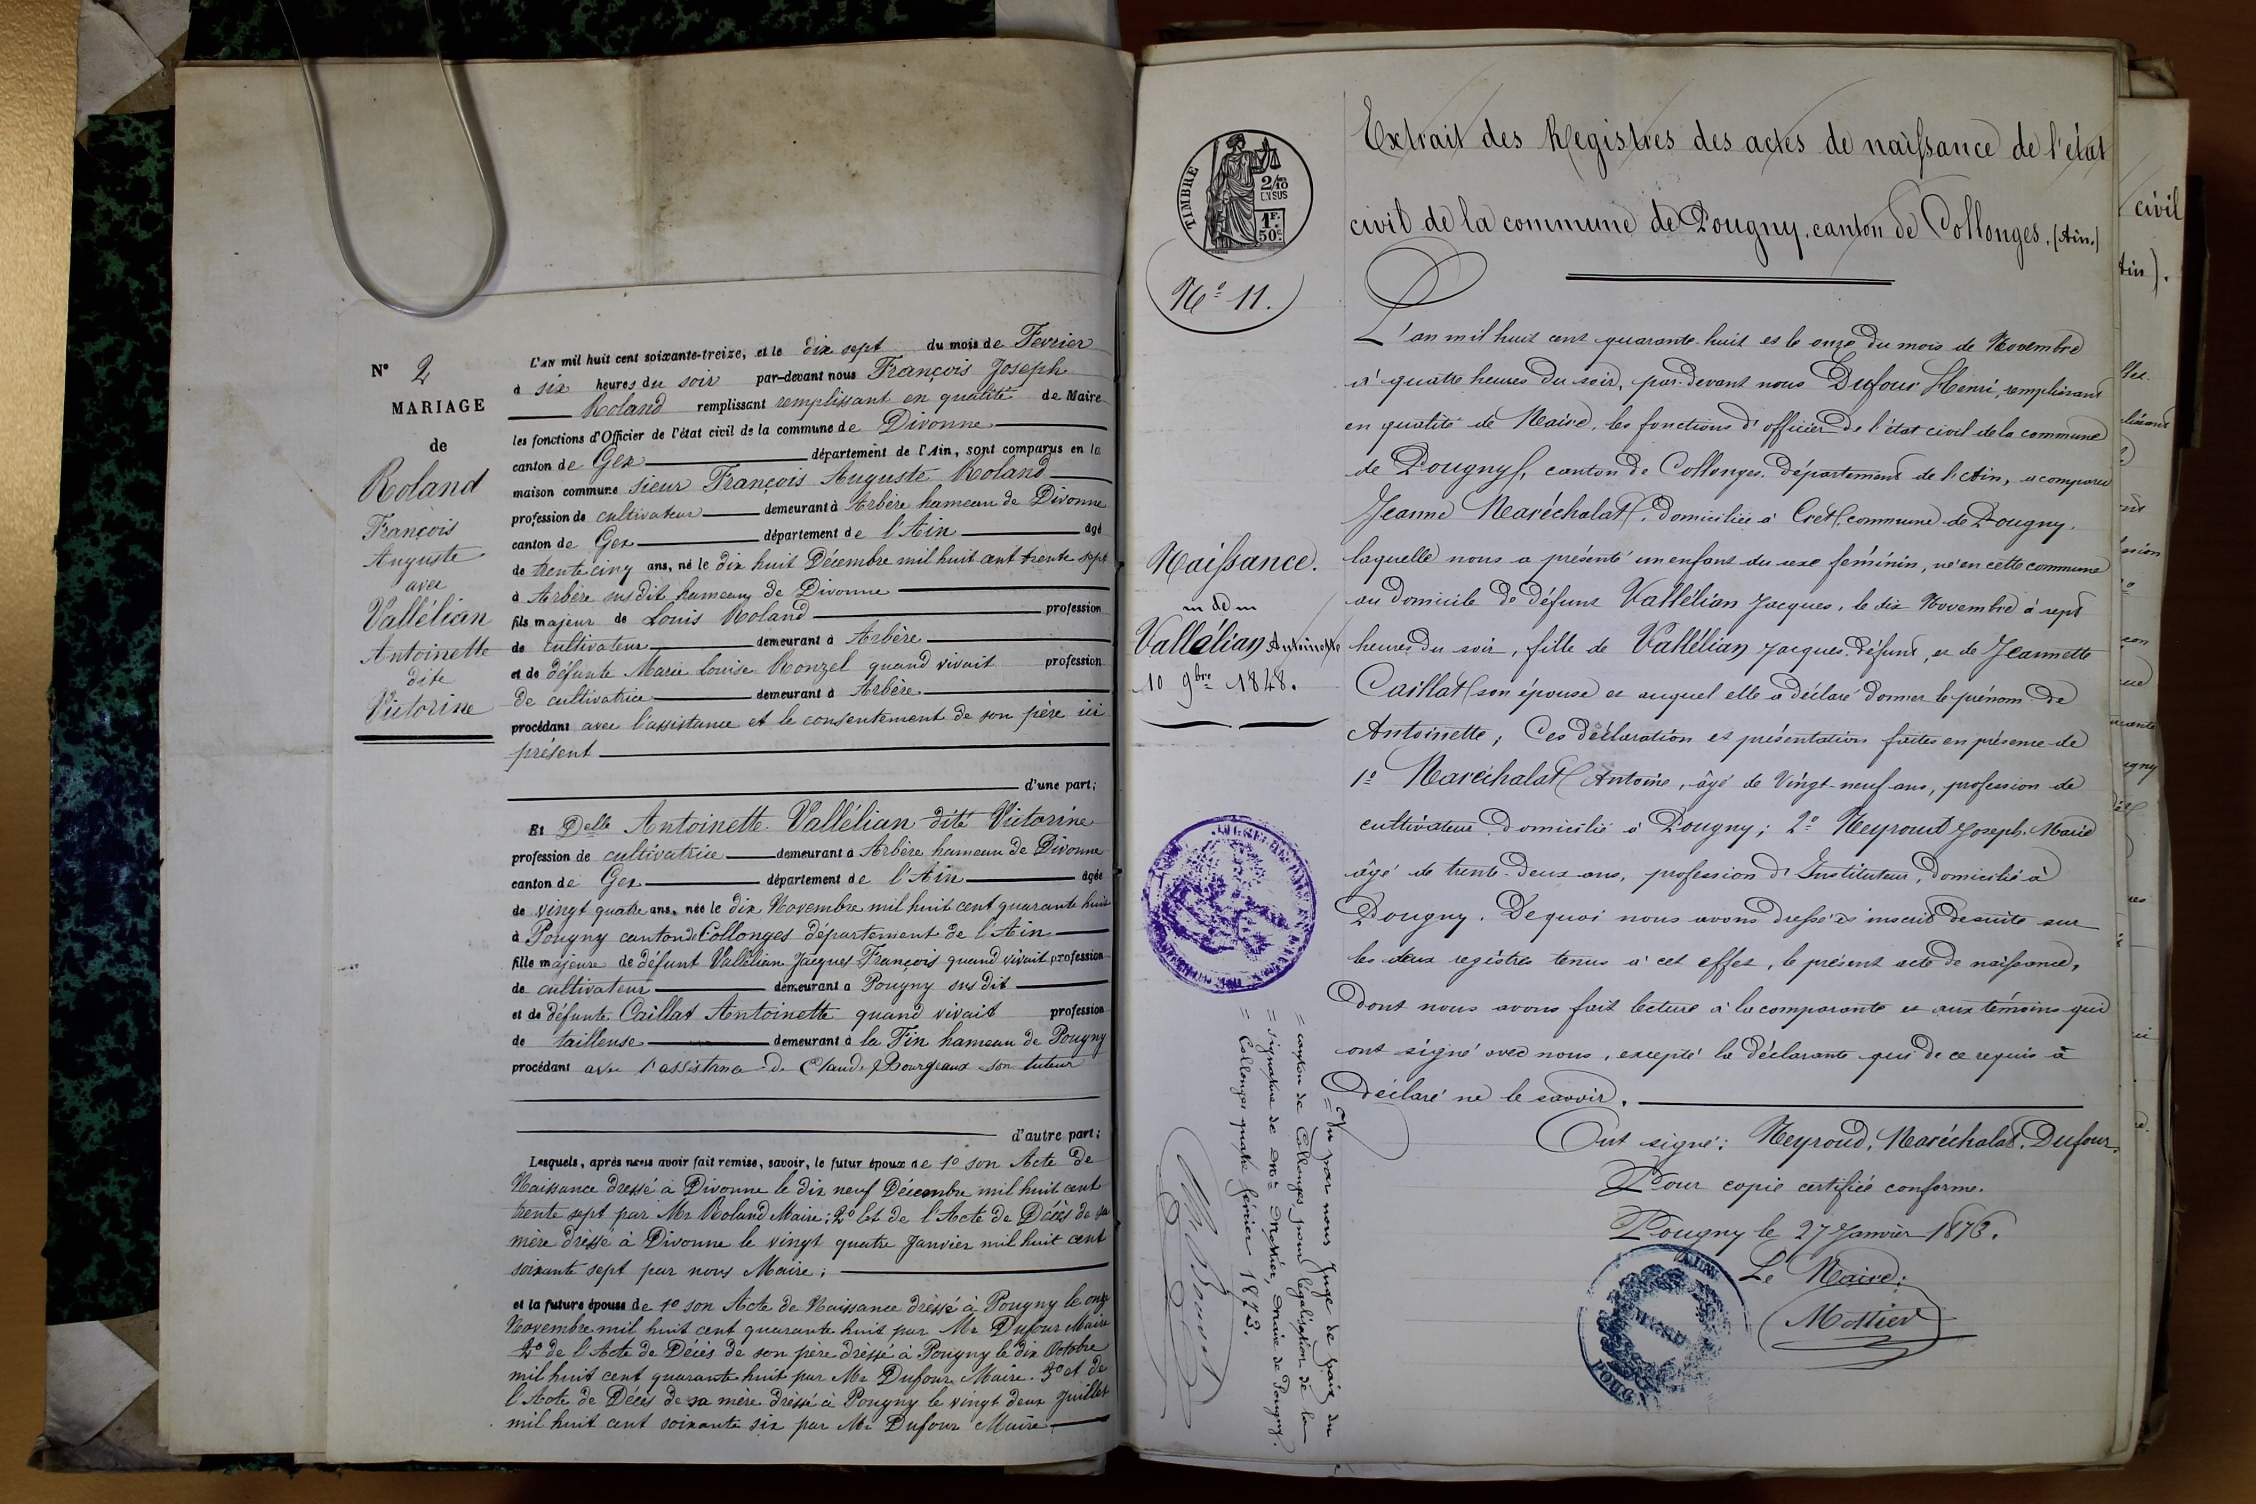 N° 2
MARIAGE
de
Roland
François
Auguste
avec
Vallélian
Antoinette
dite
Victorine
L'AN mil huit cent soixante-treize, et le dix sept du mois de Fevrier
à six heures du soir par-devant nous François Joseph
Roland remplissant remplissant en qualité de Maire
les fonctions d'Officier de l'état civil de la commune de Divonne
canton de Gex département de l'Ain, sont comparus en la
maison commune sieur François Auguste Roland
profession de cultivateur demeurant à Arbère hameau de Divonne
canton de Gex département de l'Ain âgé
de trente cinq ans, né le dix huit Décembre mil huit cent trente sept
à Arbère susdit hameau de Divonne
fils majeur de Louis Roland profession
de cultivateur demeurant à Arbère
et de défunte Marie Louise Ronzel quand vivait profession
de cultivatrice demeurant à Arbère
procédant avec l'assistance et le consentement de son père ici
présent
d'une part;
Et Delle Antoinette Vallélian dite Victorine
profession de cultivatrice demeurant à Arbère hameau de Divonne
canton de Gex département de l'Ain âgée
de vingt quatre ans, née le dix Novembre mil huit cent quarante huit
à Pougny canton de Collonges département de l'Ain
fille majeure de défunt Vallélian Jacques François quand vivait profession
de cultivateur demeurant à Pougny susdit
et de défunte Caillat Antoinette quand vivait profession
de tailleuse demeurant à la Fin hameau de Pougny
procédant avec l'assistance de Claude Bourgeaux son tuteur
d'autre part;
Lesquels, après nous avoir fait remise, savoir, le futur époux de 1° son Acte de
Naissance dressé à Divonne le dix neuf Décembre mil huit cent
trente sept par Mr Roland Maire; 2° Et de l'Acte de Décès de sa
mère dressé à Divonne le vingt quatre Janvier mil huit cent
soixante sept par nous Maire;
et la future épouse de 1° son Acte de Naissance dressé à Pougny le onze
Novembre mil huit cent quarante huit par Mr Dufour Maire
2° de l'Acte de Décès de son père dressé à Pougny le dix Octobre
mil huit cent quarante huit par Mr Dufour Maire. 3° et de
l'Acte de Décès de sa mère dressé à Pougny le vingt deux Juillet
mil huit cent soixante six par Mr Dufour Maire
TIMBRE
2/10
EN SUS
1F.
50c.
N° 11.
Naissance.
de
Vallélian Antoinette
10 9bre 1848.
Extrait des Registres des actes de naissance de l'état
civil de la commune de Pougny, canton de Collonges, (Ain.)
L'an mil huit cent quarante-huit et le onze du mois de Novembre
à quatre heures du soir, par-devant nous Dufour Henri, remplissant
en qualité de Maire, les fonctions d'officier de l'état civil de la commune
de Pougny, canton de Collonges, département de l'Ain, a comparu
Jeanne Maréchalat, domiciliée à Cret, commune de Pougny,
laquelle nous a présenté un enfant du sexe féminin, né en cette commune
au domicile de défunt Vallélian Jacques, le dix Novembre à sept
heures du soir, fille de Vallélian Jacques défunt, et de Jeannette
Caillat son épouse et auquel elle a déclaré donner le prénom de
Antoinette; Ces déclaration et présentation faites en présence de
1° Maréchalat Antoine, âgé de vingt-neuf ans, profession de
cultivateur domicilié à Pougny; 2° Neyroud Joseph-Marie
âgé de trente-deux ans, profession d'Instituteur, domicilié à
Pougny. De quoi nous avons dressé et inscrit de suite sur
les deux registres tenus à cet effet, le présent acte de naissance,
dont nous avons fait lecture à la comparante et aux témoins qui
ont signé avec nous, excepté la déclarante qui de ce requis a
déclaré ne le savoir.
Ont signé: Neyroud, Maréchalat, Dufour.
Pour copie certifiée conforme.
Pougny le 27 Janvier 1873.
Le Maire:
Mottier
AIN
POUG
= Vu par nous Juge de paix du
= canton de Collonges pour légalisation de la
= signature de Mr Mottier, Maire de Pougny.
= Collonges quatre février 1873.
civil
Ain).